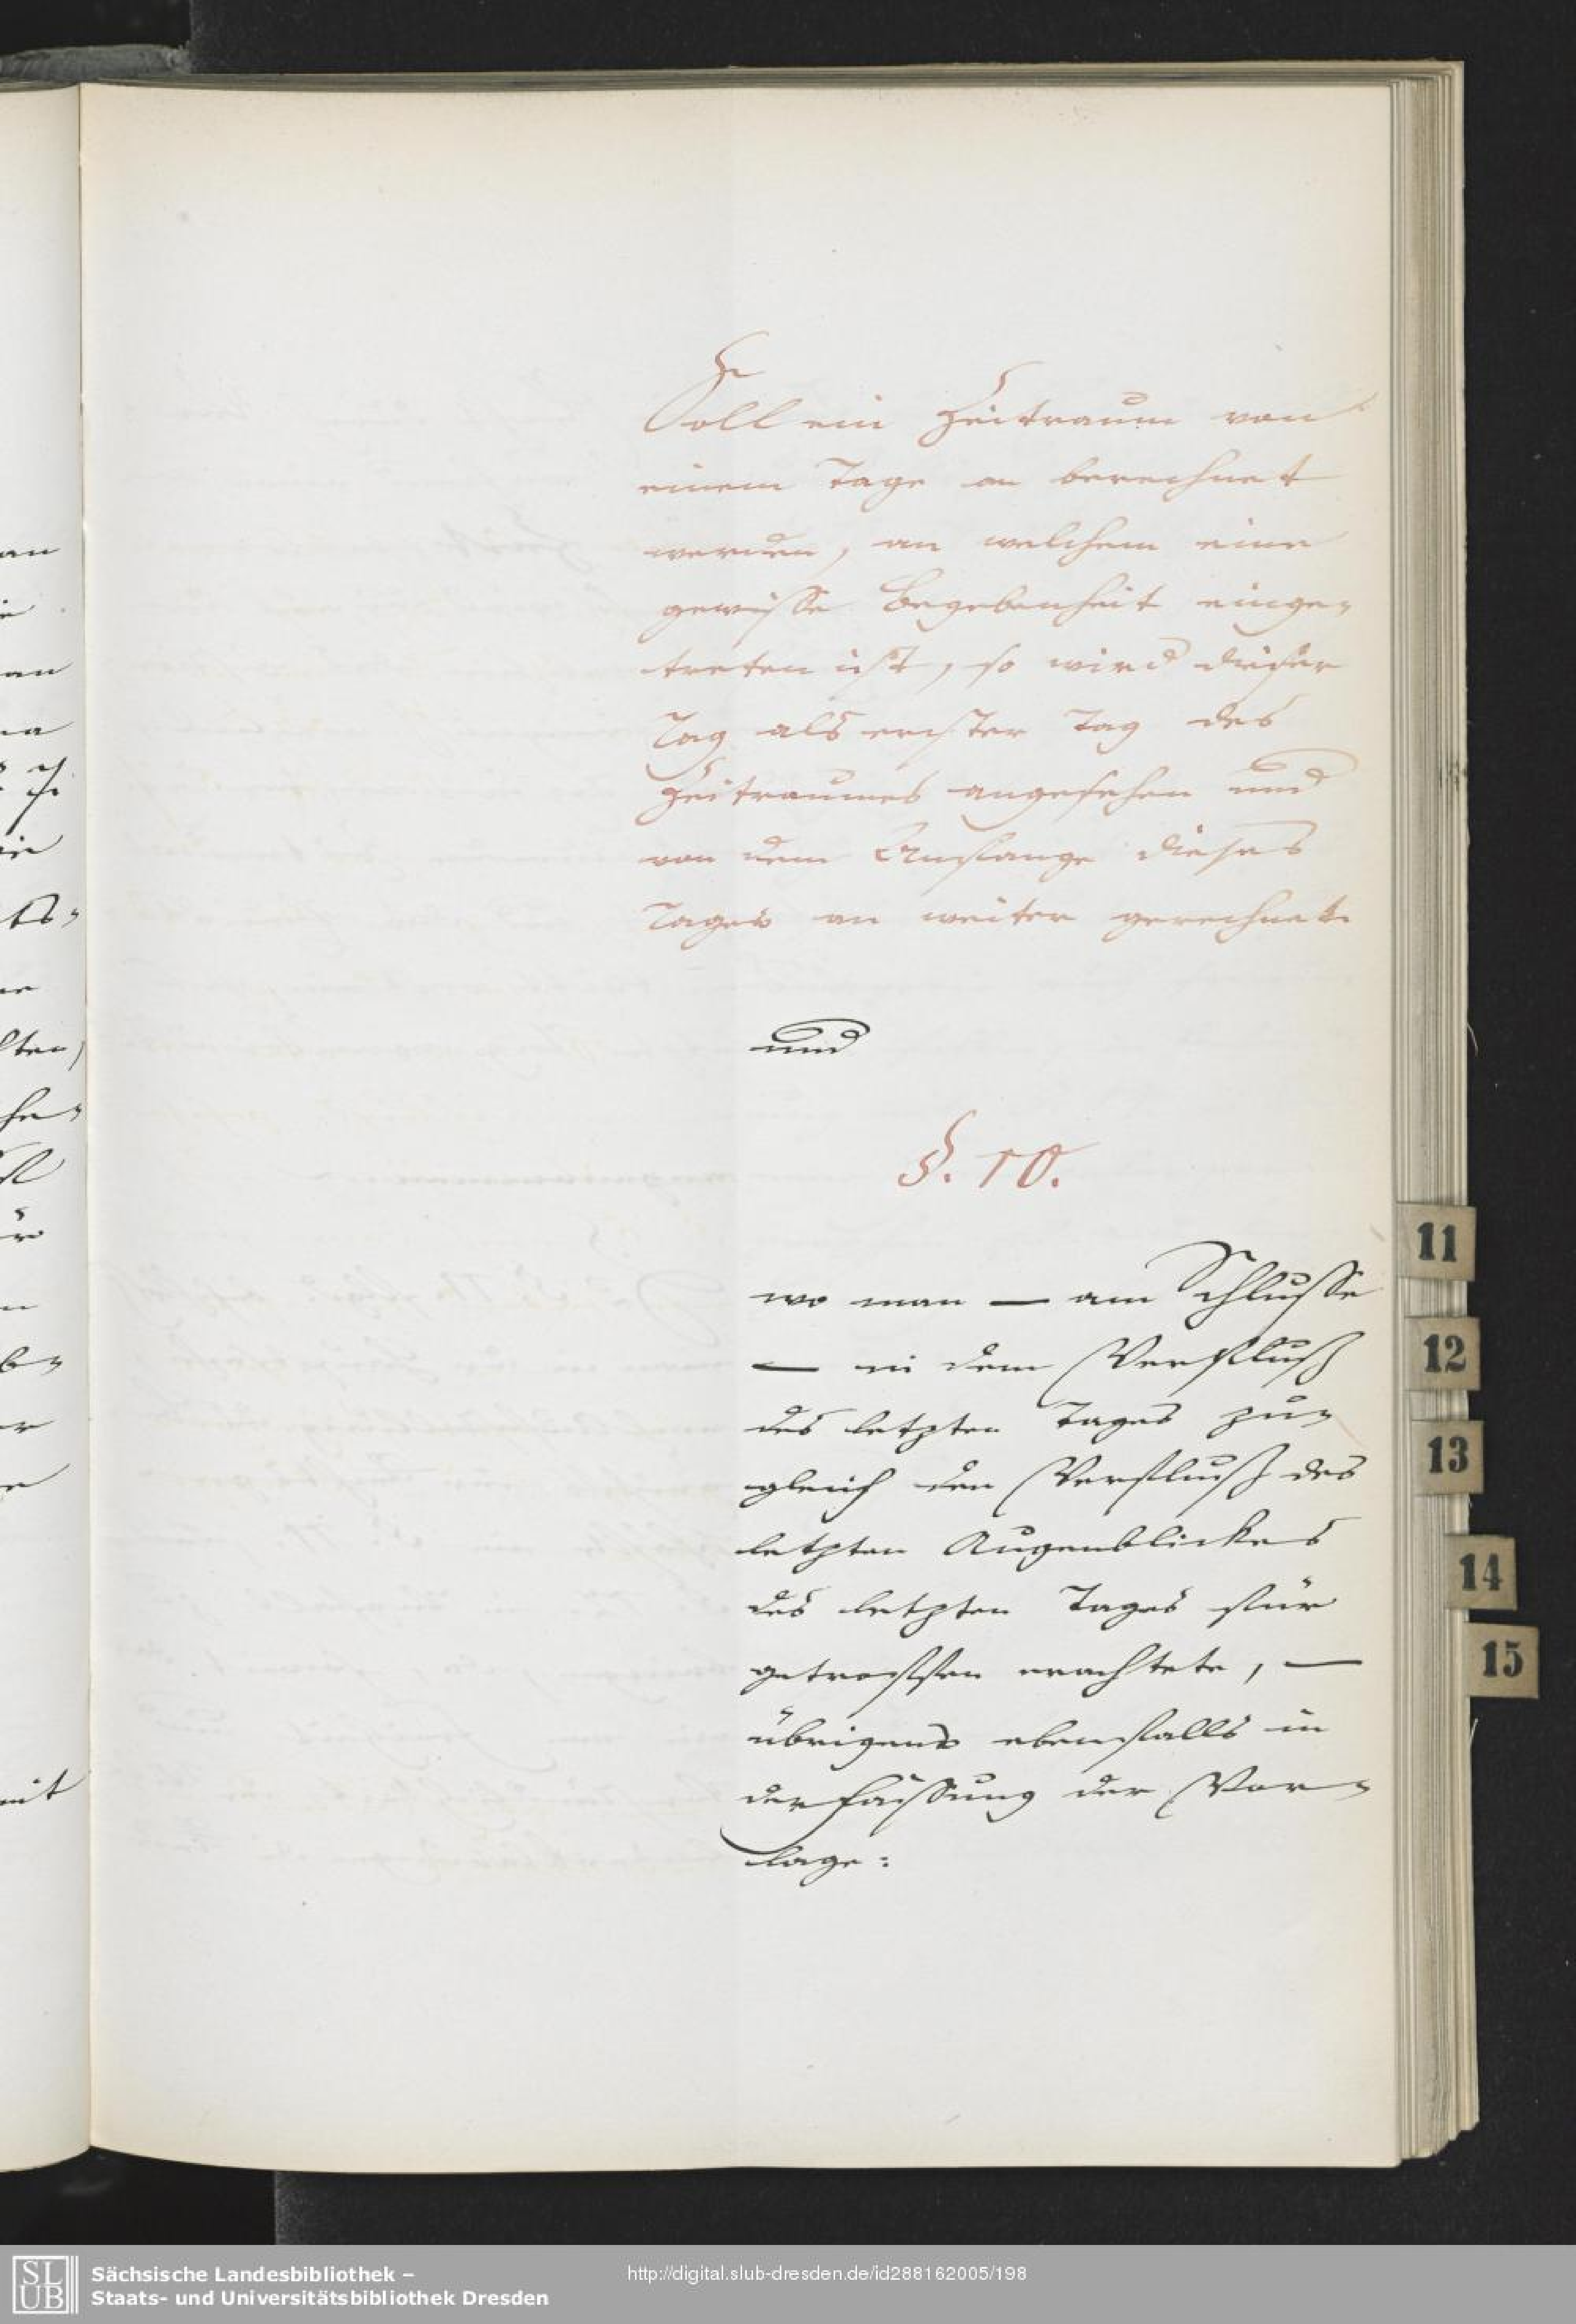 Soll ein Zeitraum von
einem Tage an berechnet
werden, an welchem eine
gewisse Begebenheit einge-
treten ist, so wird dieser
Tag als erster Tag des
Zeitraumes angesehen und
von dem Anfange dieses
Tages an weiter gerechnet.
und
§. 10.
wo man — am Schlusse
— in dem Verfluß
des letzten Tages zu-
gleich den Verfluß des
letzten Augenblickes
des letzten Tages für
getroffen erachtete, —
übrigens ebenfalls in
der Fassung der Vor-
lage:
11
12
13
14
15
SLUB
Sächsische Landesbibliothek –
Staats- und Universitätsbibliothek Dresden
http://digital.slub-dresden.de/id288162005/198